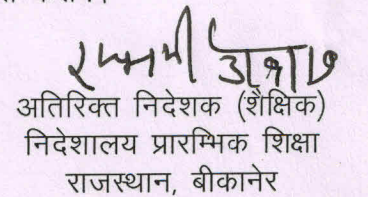 अतिरिक्त निदेशक (शैक्षिक)
निदेशालय प्रारम्भिक शिक्षा
राजस्थान, बीकानेर